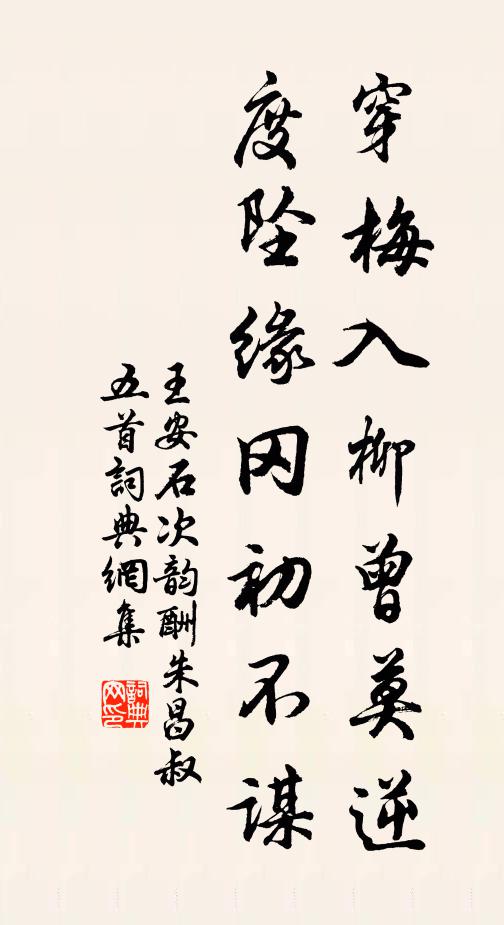 穿梅入柳曾莫逆
度坠缘冈初不謀
王安石次韵酬朱昌叔
五首詞典網集
詞典
网印